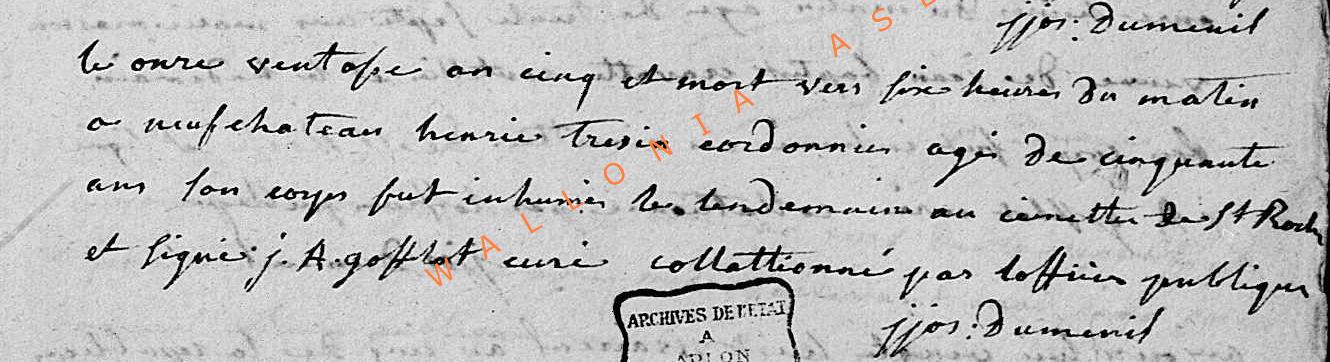 jjos: Dumenil
le onze ventose an cinq et mort vers six heures du matin
a neufchateau henrie tresin cordonnier agé de cinquante
ans son corps fut inhumé le lendemain au cimettier de St Roch
et signé j. A. gofflot curé collattionné par loffiier publique
jjos: Dumenil
WALLONIA ASB
ARCHIVES DE L'ETAT
A
ARLON